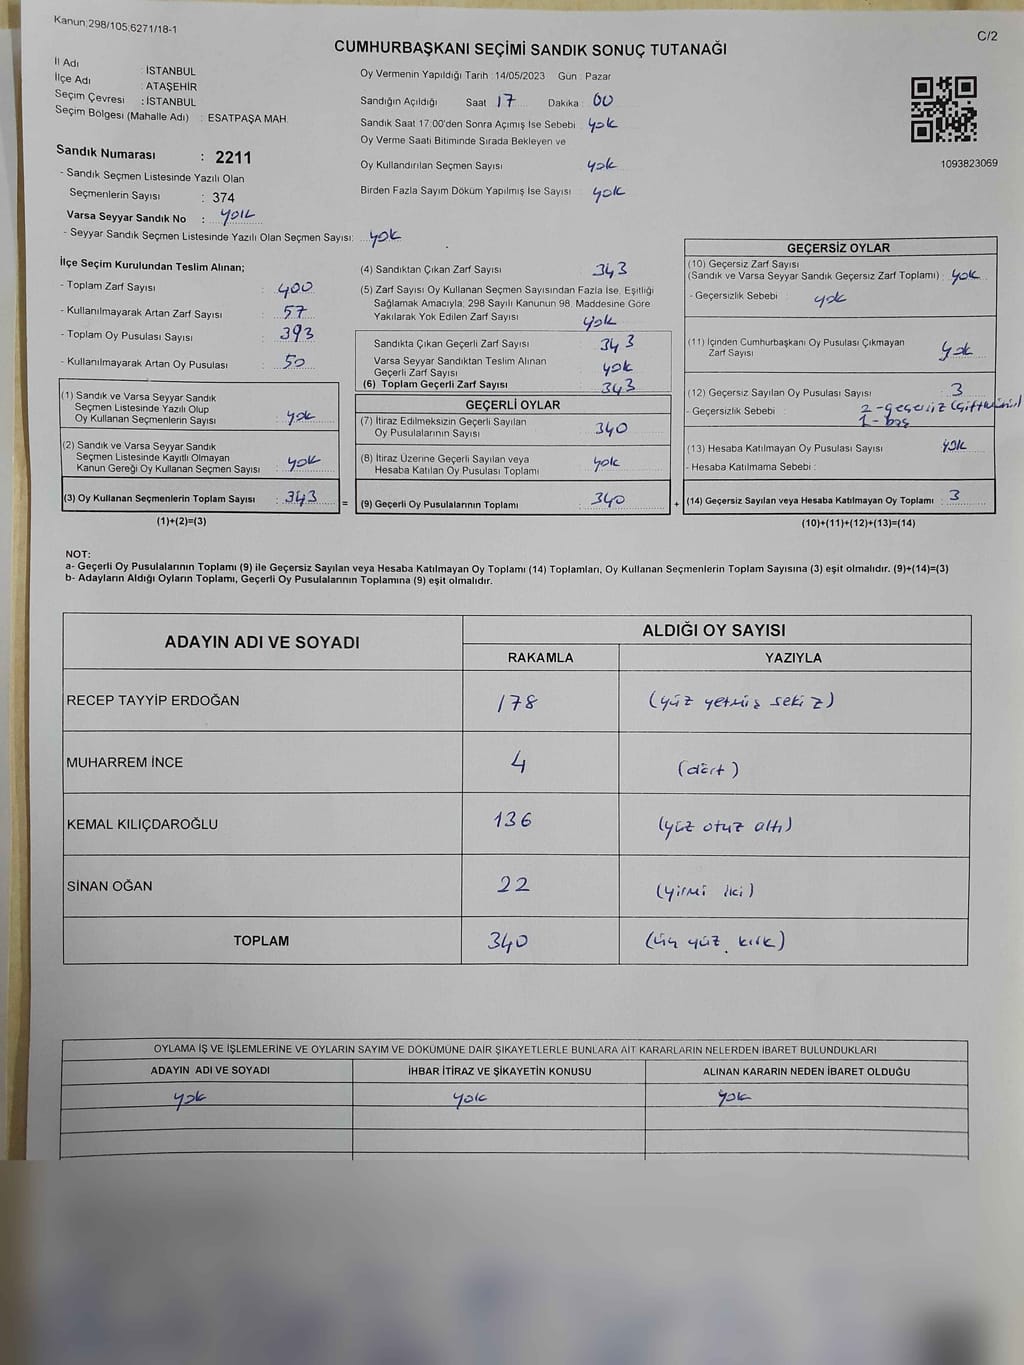 Kanun;298/105;6271/18-1
C/2
CUMHURBAŞKANI SEÇİMİ SANDIK SONUÇ TUTANAĞI
İl Adı : İSTANBUL
İlçe Adı : ATAŞEHİR
Seçim Çevresi : İSTANBUL
Seçim Bölgesi (Mahalle Adı) : ESATPAŞA MAH.
Sandık Numarası : 2211
- Sandık Seçmen Listesinde Yazılı Olan
Seçmenlerin Sayısı : 374
Varsa Seyyar Sandık No : yok
- Seyyar Sandık Seçmen Listesinde Yazılı Olan Seçmen Sayısı: yok
Oy Vermenin Yapıldığı Tarih : 14/05/2023 Gün : Pazar
Sandığın Açıldığı Saat 17 Dakika : 00
Sandık Saat 17:00'den Sonra Açımış İse Sebebi : yok
Oy Verme Saati Bitiminde Sırada Bekleyen ve
Oy Kullandırılan Seçmen Sayısı yok
Birden Fazla Sayım Döküm Yapılmış İse Sayısı : yok
1093823069
İlçe Seçim Kurulundan Teslim Alınan;
- Toplam Zarf Sayısı : 400
- Kullanılmayarak Artan Zarf Sayısı : 57
- Toplam Oy Pusulası Sayısı : 393
- Kullanılmayarak Artan Oy Pusulası : 50
(1) Sandık ve Varsa Seyyar Sandık
Seçmen Listesinde Yazılı Olup
Oy Kullanan Seçmenlerin Sayısı : yok
(2) Sandık ve Varsa Seyyar Sandık
Seçmen Listesinde Kayıtlı Olmayan
Kanun Gereği Oy Kullanan Seçmen Sayısı : yok
(3) Oy Kullanan Seçmenlerin Toplam Sayısı : 343 =
(1)+(2)=(3)
(4) Sandıktan Çıkan Zarf Sayısı : 343
(5) Zarf Sayısı Oy Kullanan Seçmen Sayısından Fazla İse, Eşitliği
Sağlamak Amacıyla, 298 Sayılı Kanunun 98. Maddesine Göre
Yakılarak Yok Edilen Zarf Sayısı : yok
Sandıkta Çıkan Geçerli Zarf Sayısı : 343
Varsa Seyyar Sandıktan Teslim Alınan
Geçerli Zarf Sayısı : yok
(6) Toplam Geçerli Zarf Sayısı : 343
GEÇERLİ OYLAR
(7) İtiraz Edilmeksizin Geçerli Sayılan
Oy Pusulalarının Sayısı : 340
(8) İtiraz Üzerine Geçerli Sayılan veya
Hesaba Katılan Oy Pusulası Toplamı : yok
(9) Geçerli Oy Pusulalarının Toplamı : 340 +
GEÇERSİZ OYLAR
(10) Geçersiz Zarf Sayısı
(Sandık ve Varsa Seyyar Sandık Geçersiz Zarf Toplamı) : yok
- Geçersizlik Sebebi : yok
(11) İçinden Cumhurbaşkanı Oy Pusulası Çıkmayan
Zarf Sayısı : yok
(12) Geçersiz Sayılan Oy Pusulası Sayısı : 3
- Geçersizlik Sebebi : 2 - geçersiz
1 - boş
(13) Hesaba Katılmayan Oy Pusulası Sayısı yok
- Hesaba Katılmama Sebebi :
(14) Geçersiz Sayılan veya Hesaba Katılmayan Oy Toplamı : 3
(10)+(11)+(12)+(13)=(14)
NOT:
a- Geçerli Oy Pusulalarının Toplamı (9) ile Geçersiz Sayılan veya Hesaba Katılmayan Oy Toplamı (14) Toplamları, Oy Kullanan Seçmenlerin Toplam Sayısına (3) eşit olmalıdır. (9)+(14)=(3)
b- Adayların Aldığı Oyların Toplamı, Geçerli Oy Pusulalarının Toplamına (9) eşit olmalıdır.
ADAYIN ADI VE SOYADI ALDIĞI OY SAYISI
RAKAMLA YAZIYLA
RECEP TAYYİP ERDOĞAN 178 (yüz yetmiş sekiz)
MUHARREM İNCE 4 (dört)
KEMAL KILIÇDAROĞLU 136 (yüz otuz altı)
SİNAN OĞAN 22 (yirmi iki)
TOPLAM 340 (üç yüz kırk)
OYLAMA İŞ VE İŞLEMLERİNE VE OYLARIN SAYIM VE DÖKÜMÜNE DAİR ŞİKAYETLERLE BUNLARA AİT KARARLARIN NELERDEN İBARET BULUNDUKLARI
ADAYIN ADI VE SOYADI İHBAR İTİRAZ VE ŞİKAYETİN KONUSU ALINAN KARARIN NEDEN İBARET OLDUĞU
yok yok yok